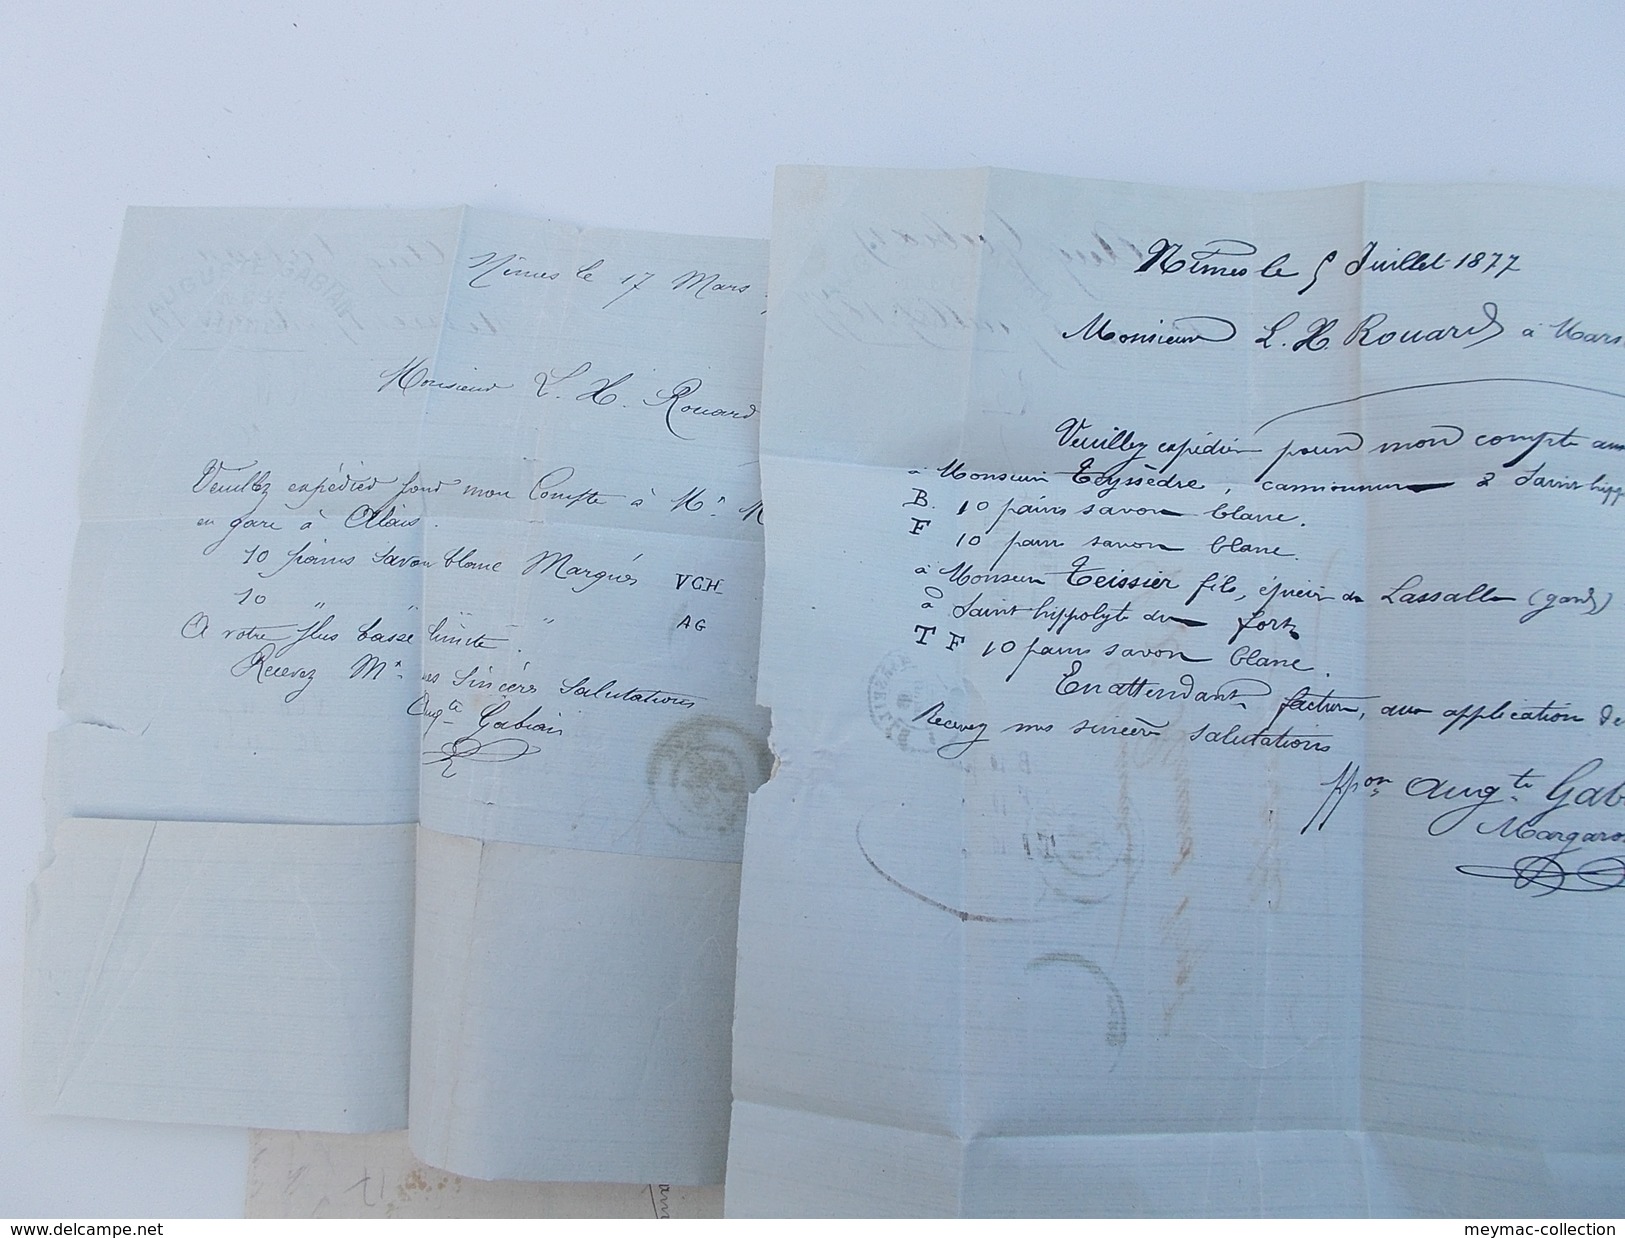 Nîmes le 17 Mars
Monsieur L. H. Rouard
Veuillez expédier pour mon Compte à Mr M
en gare à Alais.
10 pains savon blanc Marqués VGH
10 " " " AG
A votre plus basse limite.
Recevez Mr mes Sincères Salutations
Augte Gabian
Nîmes le 5 Juillet 1877
Monsieur L. H. Rouard à Mars
Veuillez expédier pour mon compte aux
à Monsieur Teyssèdre, camionneur à Saint hipp
B. 10 pains savon blanc.
F 10 pains savon blanc.
à Monsieur Teissier fils, épicier de Lassalle (gard)
à Saint hippolyte du fort
T F 10 pains savon blanc.
En attendant facture, aux application de
Recevez mes sincères salutations
ppon Augte Gab
Margaro
www.delcampe.net
meymac-collection